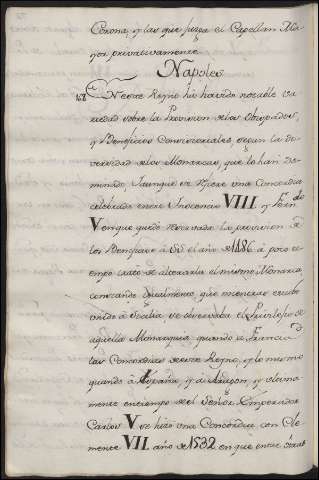 Corona, y las que juzga el Capellan Ma
yor privativamente.
Napoles
En este Reyno ha havido notable va
riedad sobre la Provision de los Obispados,
y Beneficios Consistoriales, segun la di
versidad de los Monarcas, que lo han do
minado, y aunque se hiciese una Concordia
celebrada entre Inocencio VIII y Fern.do
V en que quedo reservada la provision de
los Beneficios à S.S. el año de 1486 à poco ti
empo trato de alterarla el mismo Monarca,
conociendo que mientras estubo
unido à Sicilia, se observaba el Privilegio de
aquella Monarquia, quando à Francia
las Concordatas de este Reyno, y lo mismo
quando à España, y à Aragon, y ultima
mente en tiempo del Señor Emperador
Carlos V se hizo una Concordia con Cle
mente VII año de 1532 en que entre otras